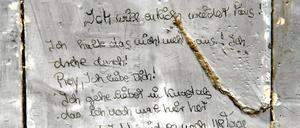 Ich will endlich wieder raus!
Ich halt das nicht mehr aus! Ich
drehe durch!
Roy, Ich liebe Dich!
Ich gehe lieber in Knast als
das ich noch mal hier her